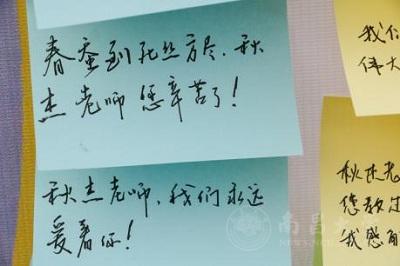 春蚕到死丝方尽，秋
杰老师您辛苦了！
秋杰老师，我们永远
爱着你！
我们
伟大
秋杰老
您敬
我感
南昌大
NEWS.NCU